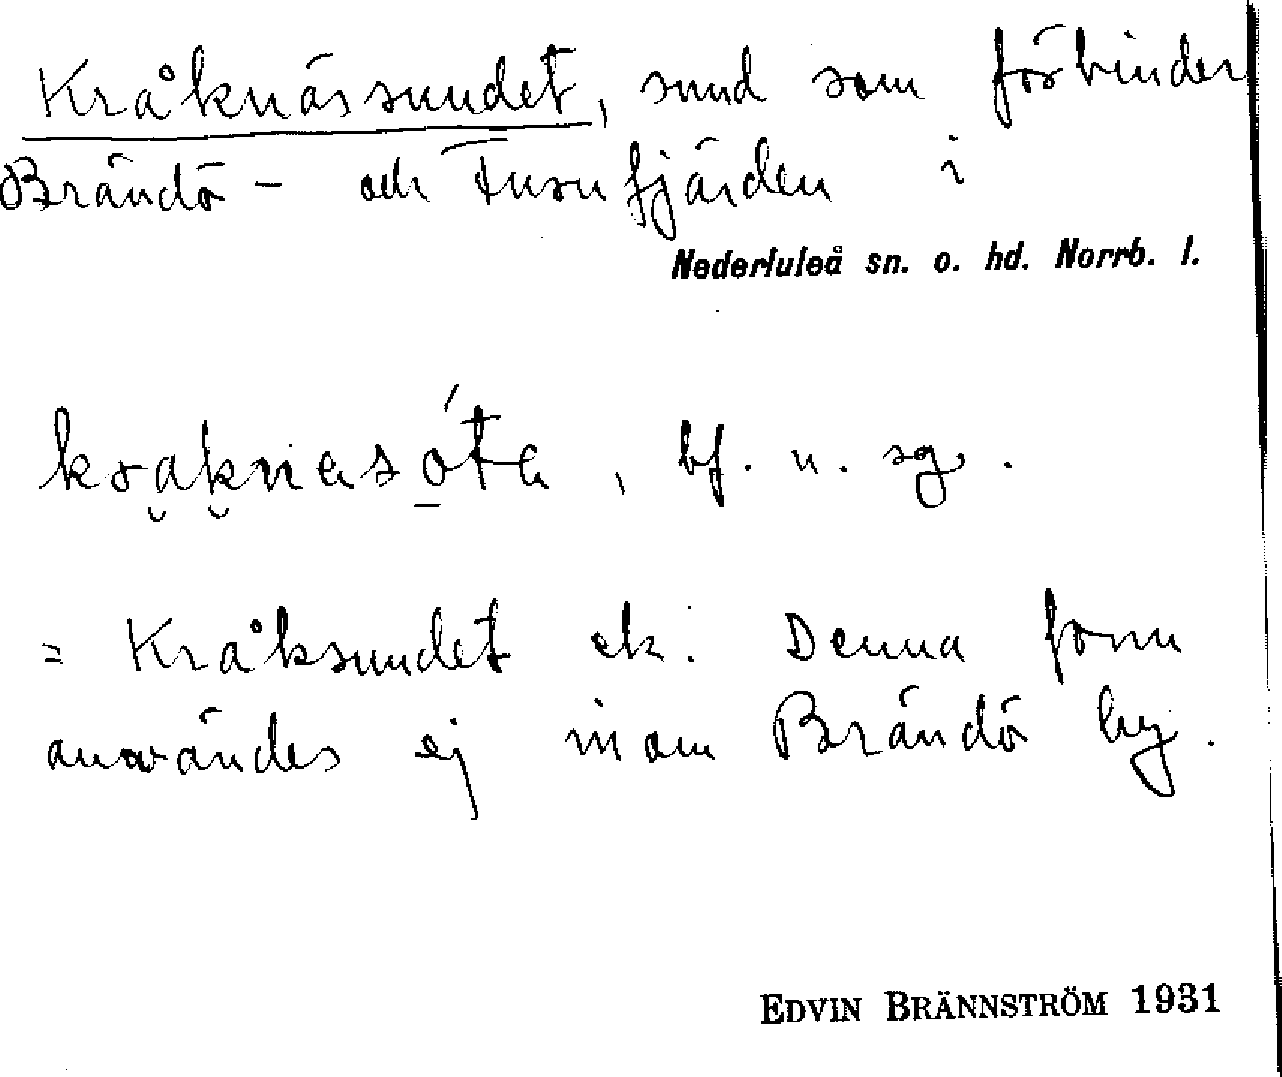 Kråknäs sundet, sund som förbinder
Brändö- och Tusufjärden i
Nederluleå sn. o. hd. Norrb. l.
kråknasóta, bf. n. sg.
= Kråksundet ek. Denna form
användes ej inom Brändö by.
EDVIN BRÄNNSTRÖM 1931